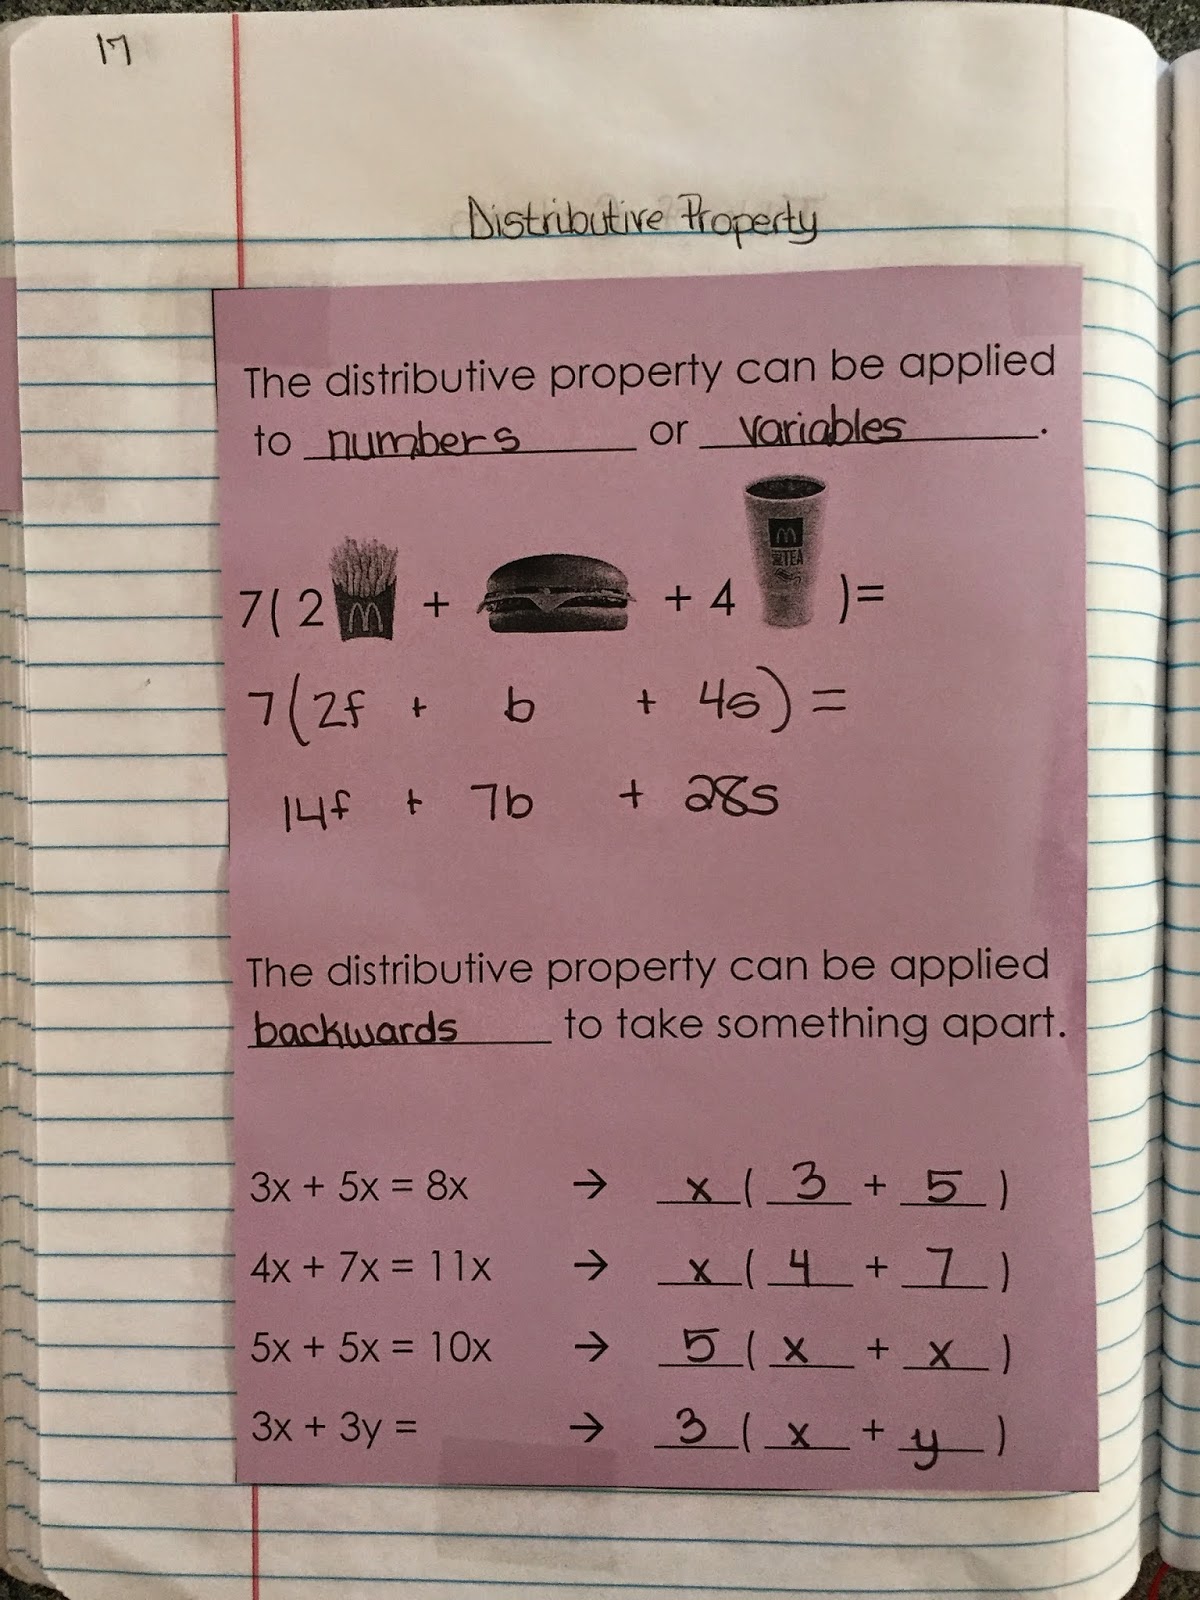 17
Distributive Property
The distributive property can be applied
to numbers or variables.
7( 2 + + 4 )=
7(2f + b + 4s) =
14f + 7b + 28s
The distributive property can be applied
backwards to take something apart.
3x + 5x = 8x → x ( 3 + 5 )
4x + 7x = 11x → x ( 4 + 7 )
5x + 5x = 10x → 5 ( x + x )
3x + 3y = → 3 ( x + y )